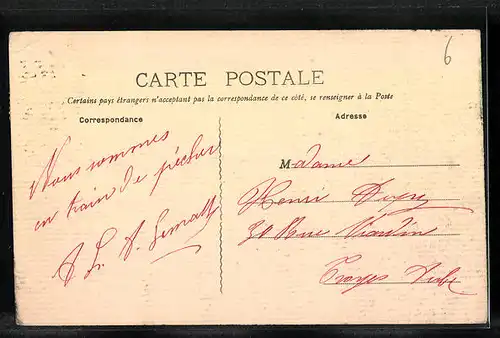 6
CARTE POSTALE
Certains pays étrangers n'acceptant pas la correspondance de ce côté, se renseigner à la Poste
Correspondance
Adresse
Nous sommes
en train de pêcher
Madame
Henri
30 Rue
Troyes Aube